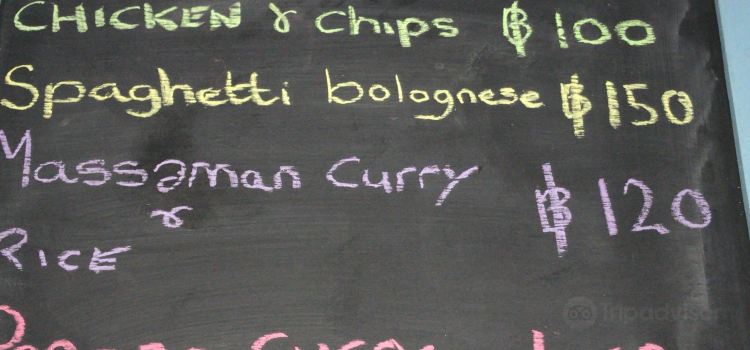 CHICKEN & Chips ฿ 100
Spaghetti bolognese ฿ 150
Massaman Curry ฿ 120
&
RICE
Tripadvisor